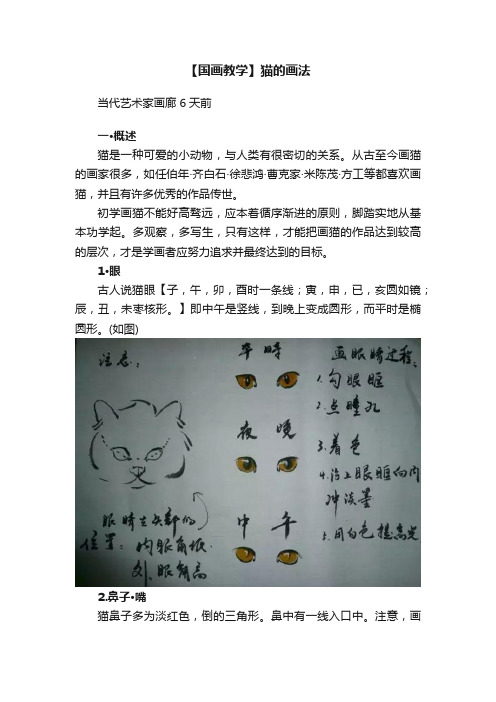 【国画教学】猫的画法
当代艺术家画廊 6天前
一·概述
猫是一种可爱的小动物，与人类有很密切的关系。从古至今画猫
的画家很多，如任伯年·齐白石·徐悲鸿·曹克家·米陈茂·方工等都喜欢画
猫，并且有许多优秀的作品传世。
初学画猫不能好高骛远，应本着循序渐进的原则，脚踏实地从基
本功学起。多观察，多写生，只有这样，才能把画猫的作品达到较高
的层次，才是学画者应努力追求并最终达到的目标。
1·眼
古人说猫眼【子，午，卯，酉时一条线；寅，申，已，亥圆如镜；
辰，丑，未枣核形。】即中午是竖线，到晚上变成圆形，而平时是椭
圆形。(如图)
注意：
眼睛在头部的
位置：内眼角低
外眼角高
平时
夜晚
中午
画眼睛过程：
1.勾眼眶
2.点瞳孔
3.着色
4.沿上眼眶向内
冲淡墨
5.用白色提高光
2.鼻子·嘴
猫鼻子多为淡红色，倒的三角形。鼻中有一线入口中。注意，画